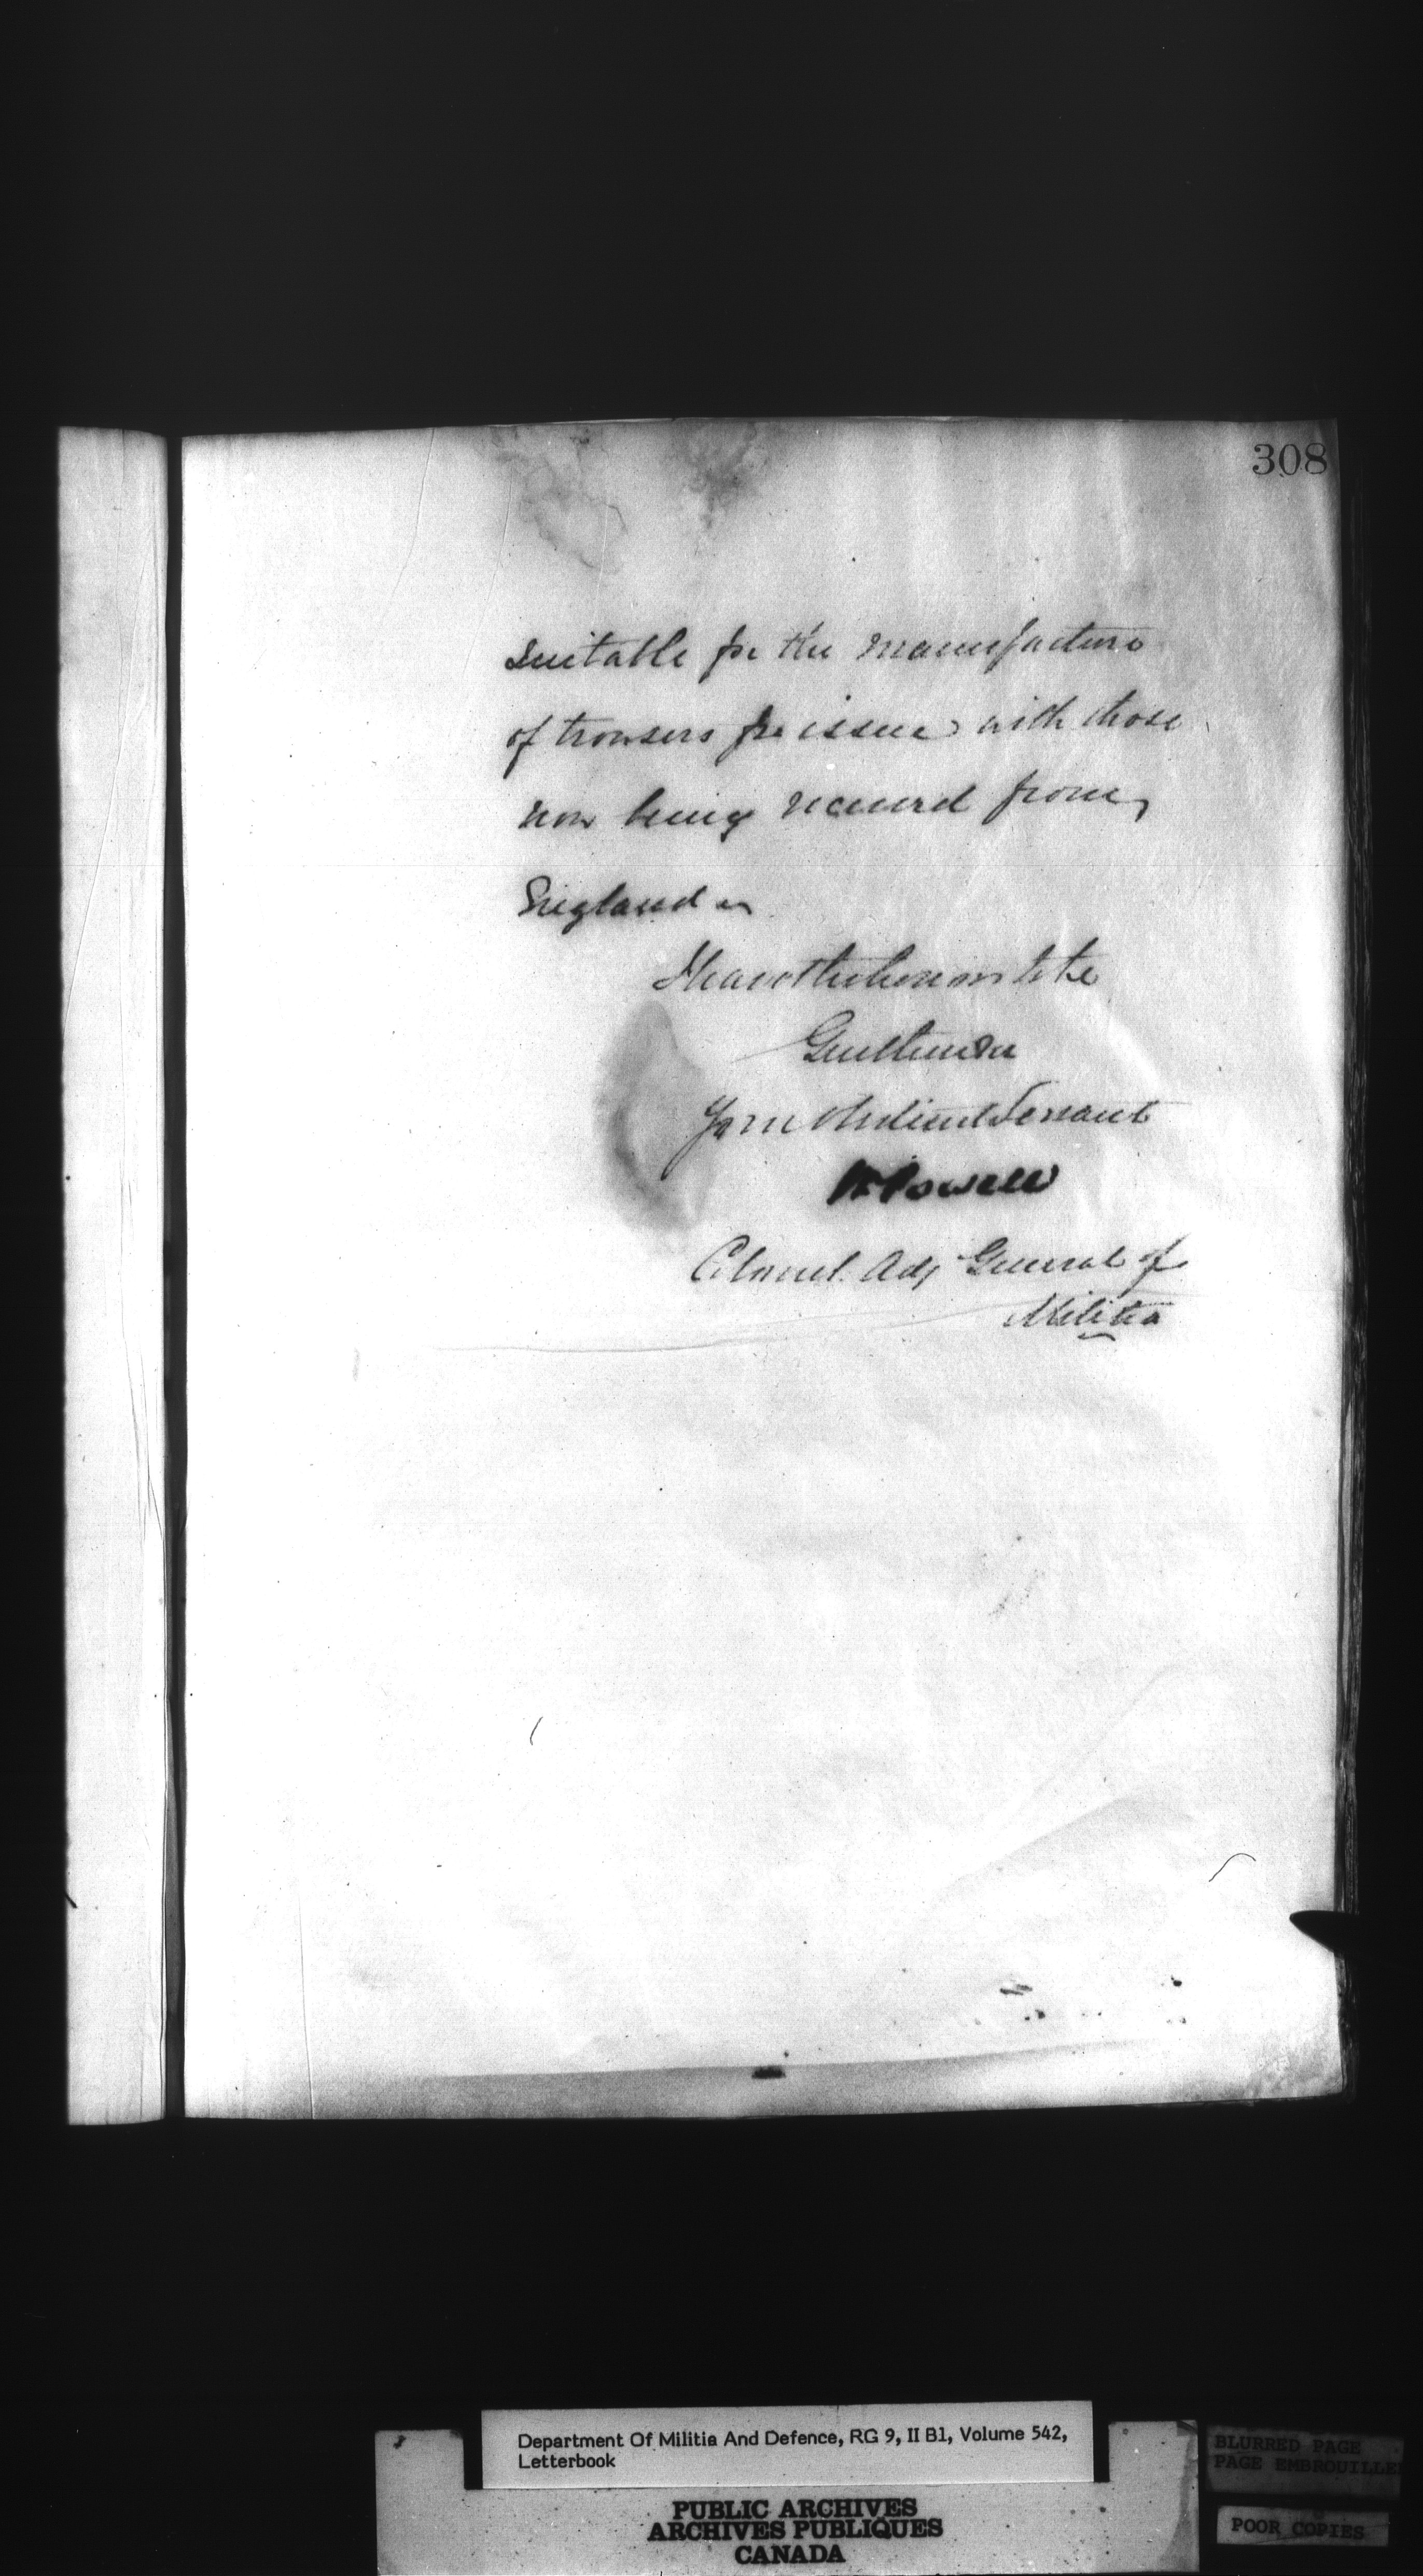 308
suitable for the manufacture
of trousers for issue with those
now being received from
England
I have the honor to be
Gentlemen
Your obedient Servant
W Powell
Colonel. Adj General of
Militia
Department Of Militia And Defence, RG 9, II B1, Volume 542,
Letterbook
BLURRED PAGE
PAGE EMBROUILLE
PUBLIC ARCHIVES
ARCHIVES PUBLIQUES
CANADA
POOR COPIES